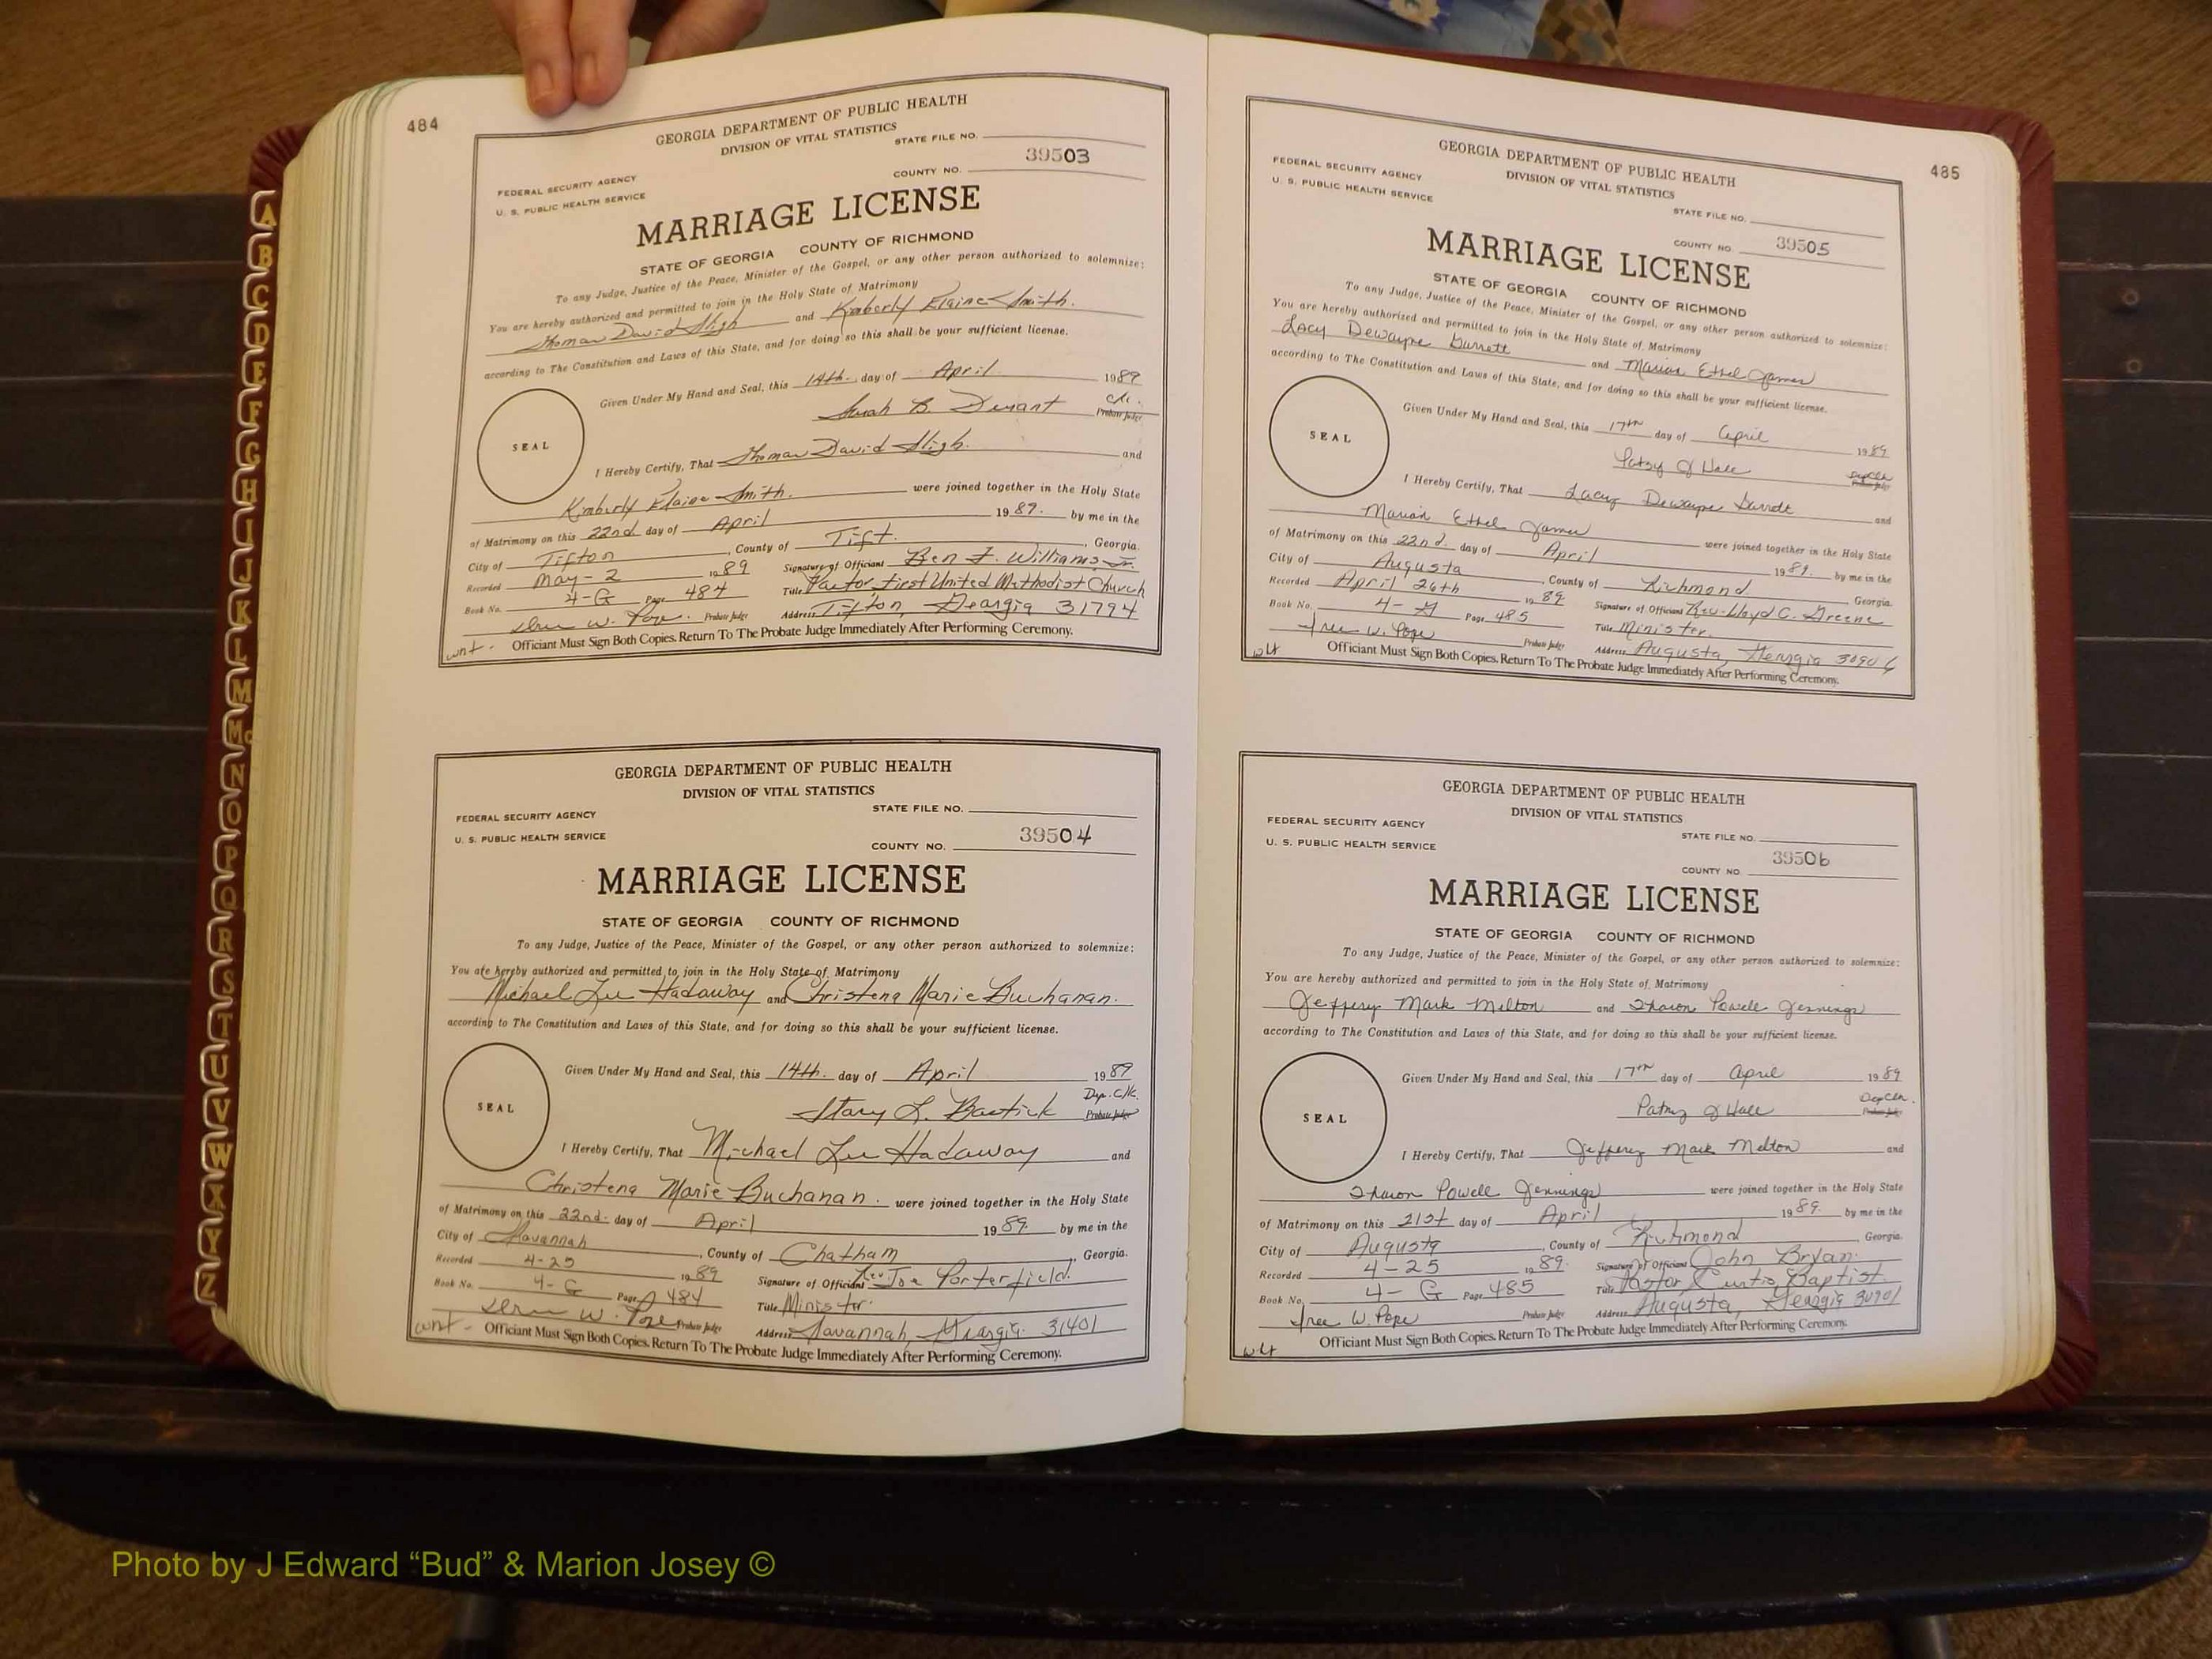 484
GEORGIA DEPARTMENT OF PUBLIC HEALTH
DIVISION OF VITAL STATISTICS
STATE FILE NO.
39503
FEDERAL SECURITY AGENCY
COUNTY NO.
U. S. PUBLIC HEALTH SERVICE
MARRIAGE LICENSE
STATE OF GEORGIA COUNTY OF RICHMOND
To any Judge, Justice of the Peace, Minister of the Gospel, or any other person authorized to solemnize:
You are hereby authorized and permitted to join in the Holy State of Matrimony
Thomas David Sligh and Kimberly Elaine Smith.
according to The Constitution and Laws of this State, and for doing so this shall be your sufficient license.
Given Under My Hand and Seal, this 14th. day of April 1989
Sarah B. Durant Probate Judge
SEAL
I Hereby Certify, That Thomas David Sligh. and
Kimberly Elaine Smith. were joined together in the Holy State
of Matrimony on this 22nd day of April 1989. by me in the
City of Tifton, County of Tift., Georgia.
Recorded May-2 1989 Signature of Officiant Ben F. Williams Jr.
Book No. 4-G Page 484 Title Pastor First United Methodist Church
W. Pope. Probate Judge Address Tifton, Georgia 31794
wnt. Officiant Must Sign Both Copies. Return To The Probate Judge Immediately After Performing Ceremony.
GEORGIA DEPARTMENT OF PUBLIC HEALTH
DIVISION OF VITAL STATISTICS
FEDERAL SECURITY AGENCY STATE FILE NO.
U. S. PUBLIC HEALTH SERVICE 39504
COUNTY NO.
MARRIAGE LICENSE
STATE OF GEORGIA COUNTY OF RICHMOND
To any Judge, Justice of the Peace, Minister of the Gospel, or any other person authorized to solemnize:
You are hereby authorized and permitted to join in the Holy State of Matrimony
Michael Lee Hadaway and Christena Marie Buchanan.
according to The Constitution and Laws of this State, and for doing so this shall be your sufficient license.
Given Under My Hand and Seal, this 14th. day of April 1989
Dep. Clk.
Stacy L. Bastick Probate Judge
SEAL
I Hereby Certify, That Michael Lee Hadaway and
Christena Marie Buchanan. were joined together in the Holy State
of Matrimony on this 22nd. day of April 1989. by me in the
City of Savannah, County of Chatham, Georgia.
Recorded 4-25 1989 Signature of Officiant Rev. Joe Porterfield.
Book No. 4-G Page 484 Title Minister.
W. Pope Probate Judge Address Savannah, Georgia. 31401
wnt- Officiant Must Sign Both Copies. Return To The Probate Judge Immediately After Performing Ceremony.
485
GEORGIA DEPARTMENT OF PUBLIC HEALTH
DIVISION OF VITAL STATISTICS
FEDERAL SECURITY AGENCY STATE FILE NO.
U. S. PUBLIC HEALTH SERVICE
COUNTY NO. 39505
MARRIAGE LICENSE
STATE OF GEORGIA COUNTY OF RICHMOND
To any Judge, Justice of the Peace, Minister of the Gospel, or any other person authorized to solemnize:
You are hereby authorized and permitted to join in the Holy State of Matrimony
Lacy Dewayne Garrett and Marian Ethel James
according to The Constitution and Laws of this State, and for doing so this shall be your sufficient license.
Given Under My Hand and Seal, this 17th day of April 1989
Patsy J Hall Dep Clk Probate Judge
SEAL
I Hereby Certify, That Lacy Dewayne Garrett and
Marian Ethel James were joined together in the Holy State
of Matrimony on this 22nd. day of April 1989. by me in the
City of Augusta, County of Richmond. Georgia.
Recorded April 26th 1989 Signature of Officiant Rev. Lloyd C. Greene
Book No. 4-G Page 485 Title Minister.
W. Pope Probate Judge Address Augusta, Georgia 30906
Officiant Must Sign Both Copies. Return To The Probate Judge Immediately After Performing Ceremony.
GEORGIA DEPARTMENT OF PUBLIC HEALTH
DIVISION OF VITAL STATISTICS
FEDERAL SECURITY AGENCY STATE FILE NO.
U. S. PUBLIC HEALTH SERVICE 39506
COUNTY NO.
MARRIAGE LICENSE
STATE OF GEORGIA COUNTY OF RICHMOND
To any Judge, Justice of the Peace, Minister of the Gospel, or any other person authorized to solemnize:
You are hereby authorized and permitted to join in the Holy State of Matrimony
Jeffery Mark Melton and Sharon Powell Jennings
according to The Constitution and Laws of this State, and for doing so this shall be your sufficient license.
Given Under My Hand and Seal, this 17th day of April 1989
Dep Clk.
Patsy J Hall Probate Judge
SEAL
I Hereby Certify, That Jeffery Mark Melton and
Sharon Powell Jennings were joined together in the Holy State
of Matrimony on this 21st day of April 1989. by me in the
City of Augusta, County of Richmond Georgia.
Recorded 4-25 1989. Signature of Officiant John Bryan.
Book No. 4-G Page 485 Title Pastor Curtis Baptist.
W. Pope Probate Judge Address Augusta, Georgia 30901
Officiant Must Sign Both Copies. Return To The Probate Judge Immediately After Performing Ceremony.
A
B
C
D
E
F
G
H
I
J
K
L
M
Mc
N
O
P
Q
R
S
T
U
V
W
X
Y
Z
Photo by J Edward “Bud” & Marion Josey ©